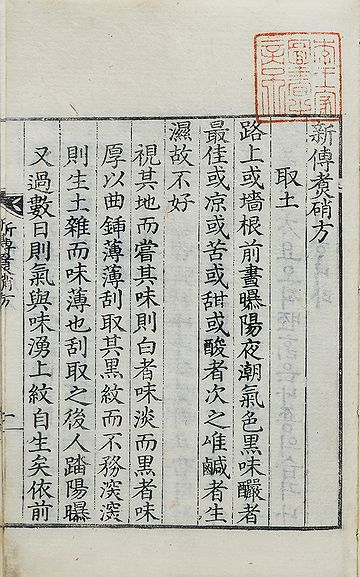 新傳煑硝方
取土
路上或墻根前晝曝陽夜潮氣色黒味釅者
最佳或凉或苦或甜或酸者次之唯鹹者生
濕故不好
視其地而嘗其味則白者味淡而黒者味
厚以曲鍤薄薄刮取其黒紋而不務深深
則生土雜而味薄也刮取之後人踏陽曝
又過數日則氣與味湧上紋自生矣依前
新傳煑硝方
一